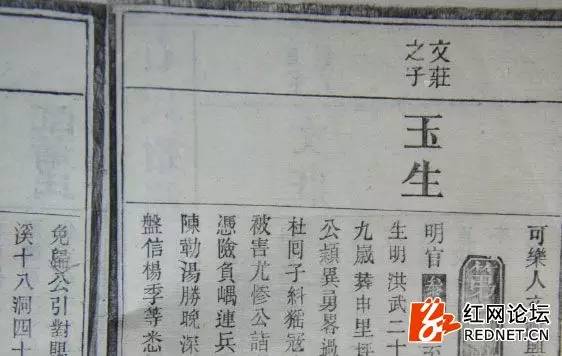 可樂人
第
文莊
之子
玉生
明官
生明洪武二十
九歲葬申里坪
公穎異勇畧過
杜囘子糾猺寇
被害尤慘公詰
憑險負嵎連兵
陳勒湯勝晚深
盤信楊季等悉
免歸公引對
溪十八洞四十
红网论坛
REDNET.CN